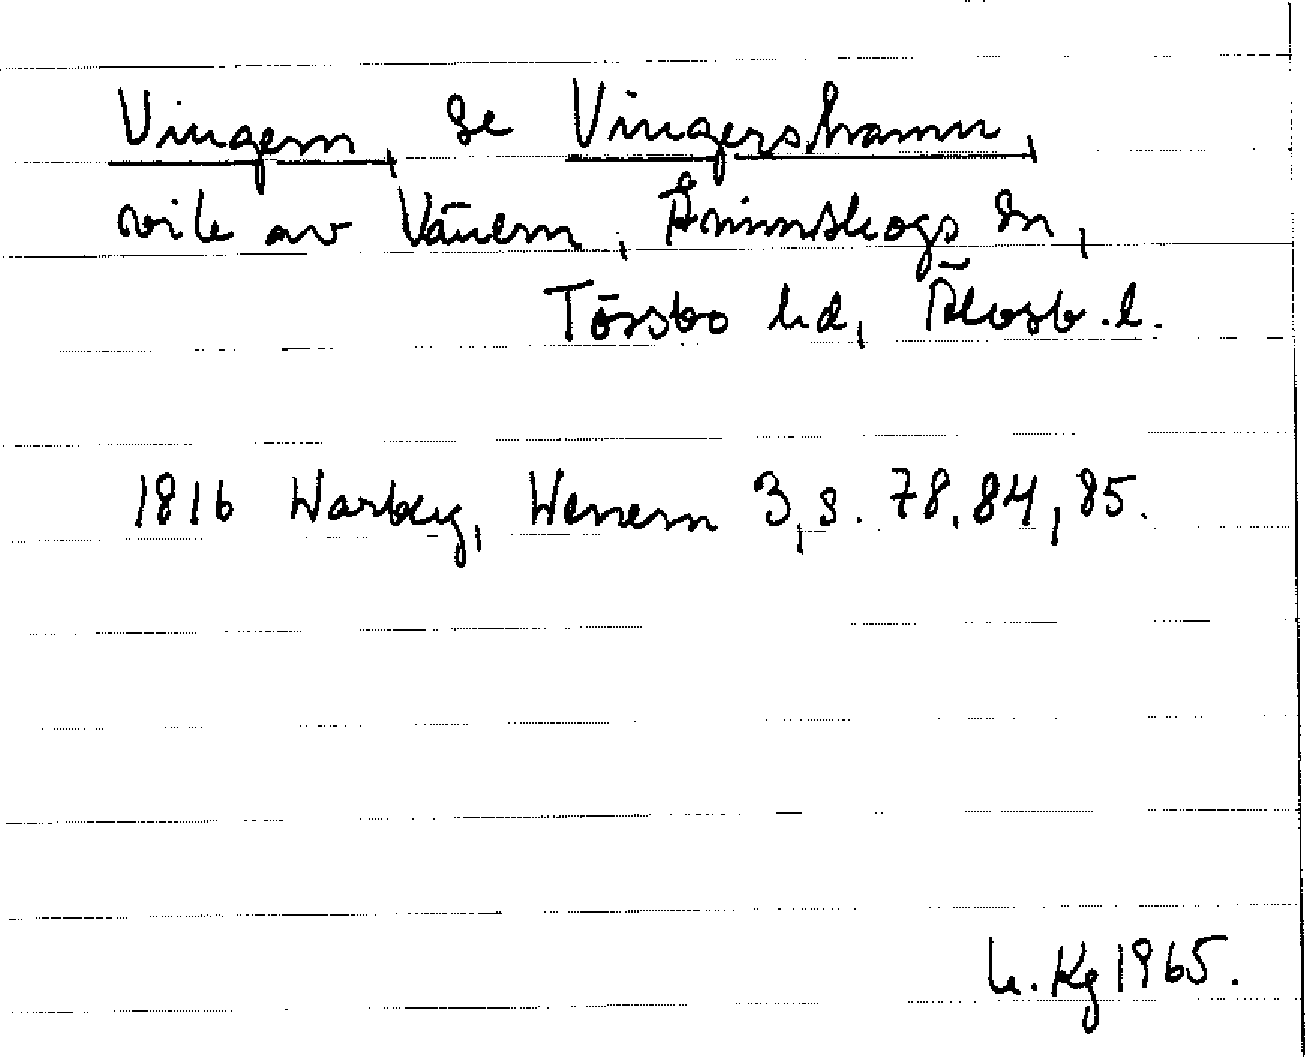 Vingern, se Vingershamn,
vik av Vänern, Ånimskogs sn,
Tössbo hd, Älvsb. l.
1816 Warberg, Wenern 3, s. 78, 84, 85.
L. Kg 1965.